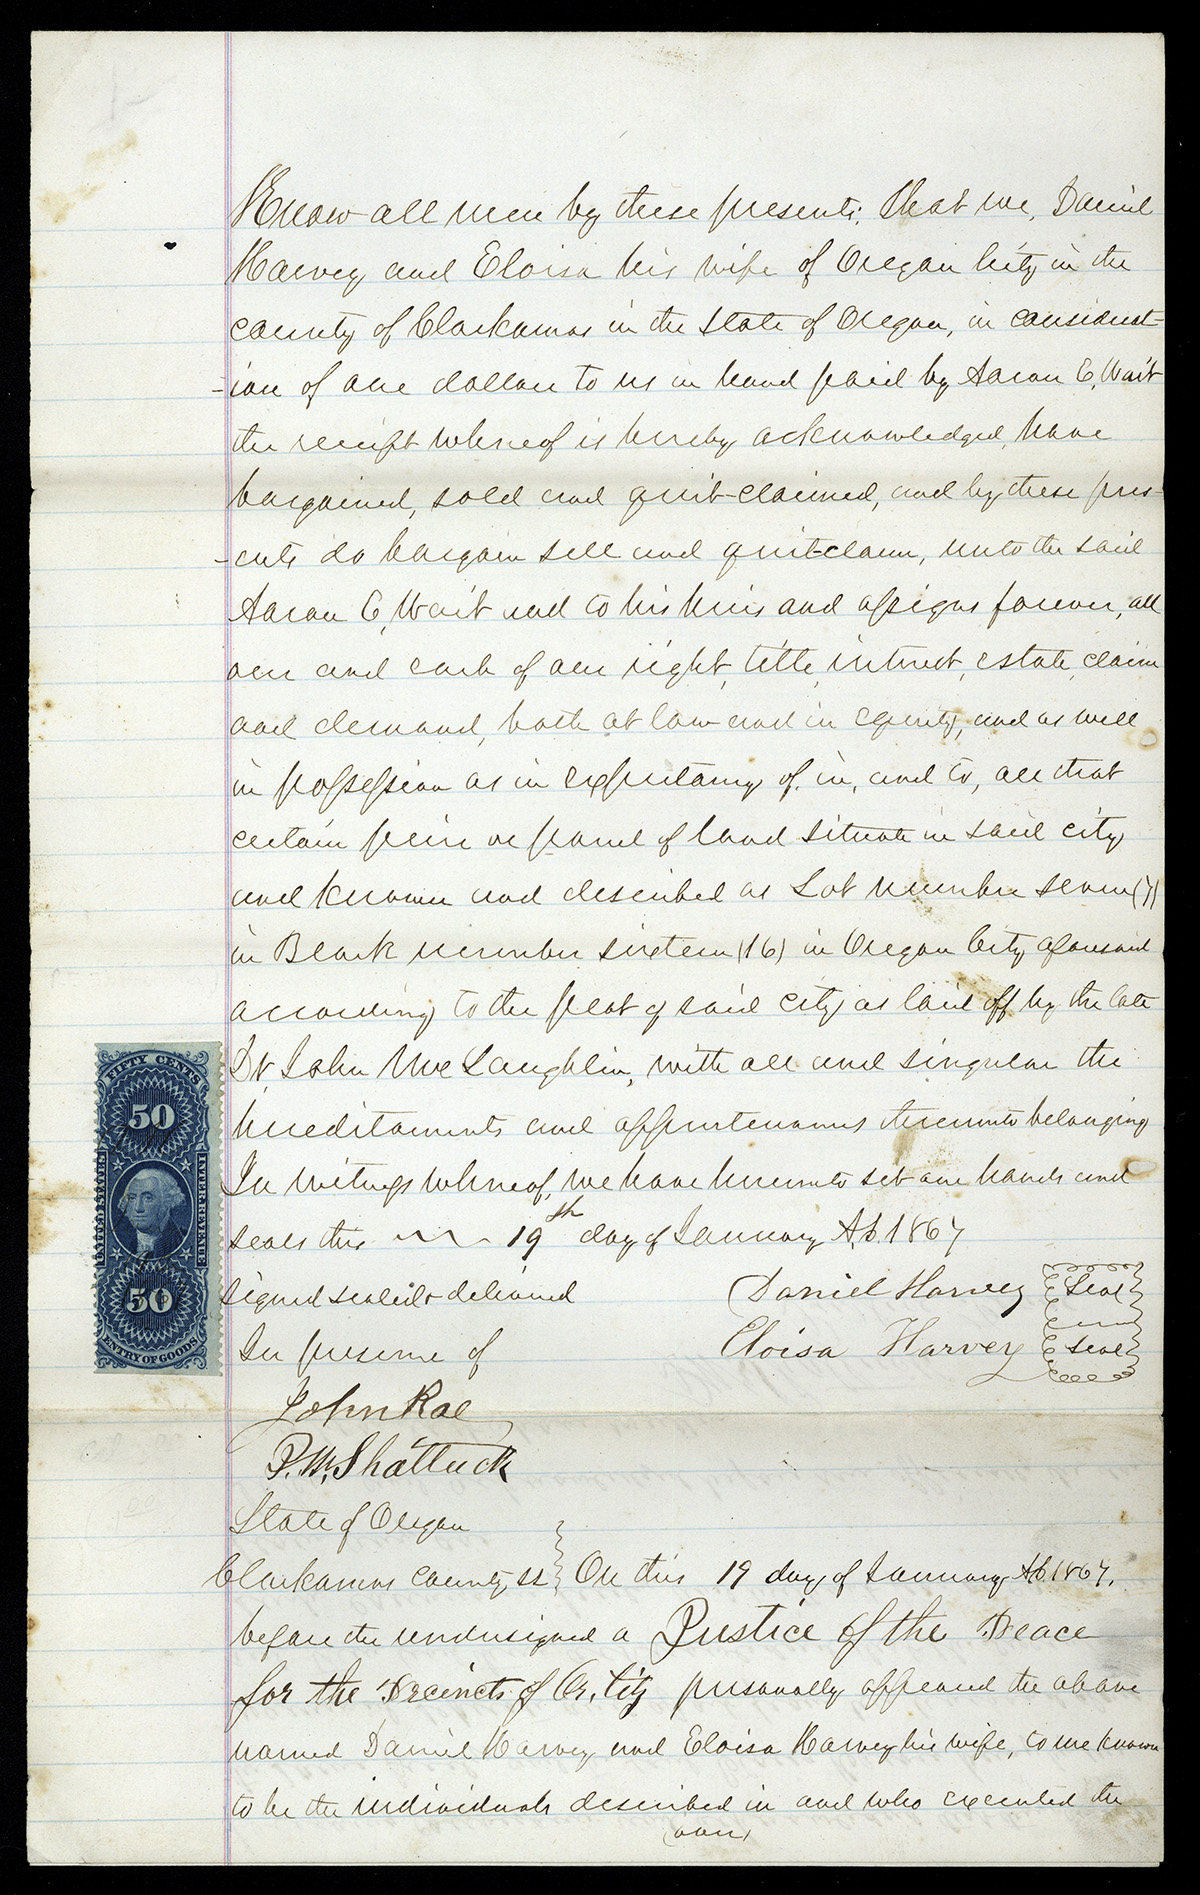 Know all men by these presents, that we, Daniel
Harvey and Eloisa his wife of Oregon City in the
county of Clackamas in the State of Oregon, in considerat-
-ion of one dollar to us in hand paid by Aaron E. Wait
the receipt whereof is hereby acknowledged, have
bargained, sold and quit-claimed, and by these pres-
-ents do bargain sell and quit-claim, unto the said
Aaron E. Wait and to his heirs and assigns forever, all
our and each of our right, title, interest, estate, claim
and demand, both at law and in equity, and as well
in possession as in expectancy of, in, and to, all that
certain piece or parcel of land situate in said city
and known and described as Lot number seven (7)
in Block number sixteen (16) in Oregon City aforesaid
according to the plat of said city as laid off by the late
Dr. John McLaughlin, with all and singular the
hereditaments and appurtenances thereunto belonging
In witness whereof, we have hereunto set our hands and
seals this 19th day of January A.D. 1867
signed sealed & delivered
In presence of
Daniel Harvey Seal
Eloisa Harvey Seal
John Rae
P. M. Shattuck
State of Oregon
Clackamas County ss } On this 19 day of January A.D. 1867,
before the undersigned a Justice of the Peace
for the Precincts of Or. City personally appeared the above
named Daniel Harvey and Eloisa Harvey his wife, to me known
to be the individuals described in and who executed the
(over)
FIFTY CENTS
50
UNITED STATES
INTER. REVENUE
50
ENTRY OF GOODS